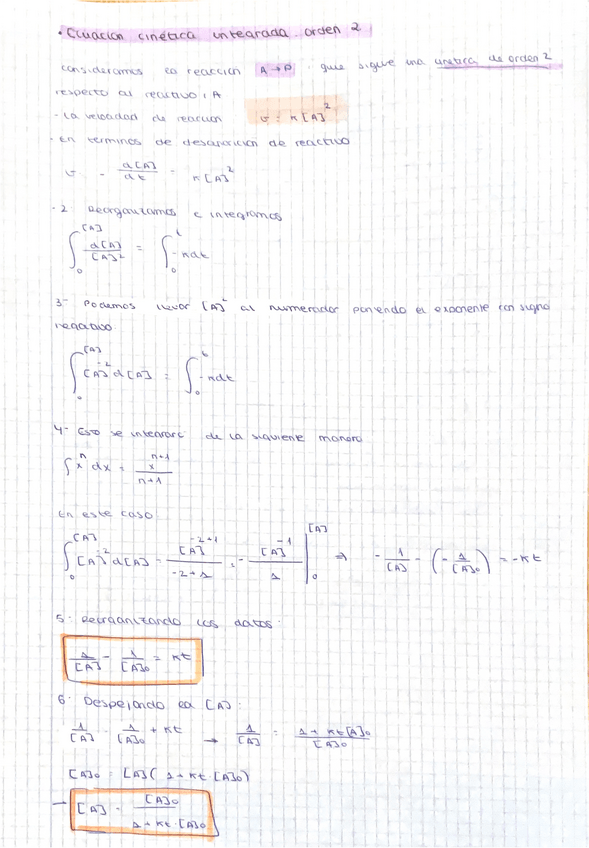 • Ecuación cinética integrada orden 2
consideramos la reacción A → P que sigue una cinética de orden 2
respecto al reactivo, A
- La velocidad de reacción v = K[A]²
- En términos de desaparición de reactivo
v = - d[A]/dt = K[A]²
- 2- Reorganizamos e integramos
∫₀^[A] d[A]/[A]² = ∫₀^t -Kdt
3- Podemos llevar [A]² al numerador poniendo el exponente con signo
negativo
∫₀^[A] [A]⁻² d[A] = ∫₀^t -Kdt
4- Esto se integrará de la siguiente manera
∫xⁿ dx = xⁿ⁺¹/n+1
En este caso:
∫₀^[A] [A]⁻² d[A] = [A]⁻²⁺¹/-2+1 = - [A]⁻¹/1 |₀^[A] ⇒ - 1/[A] - (- 1/[A]₀) = -Kt
5- Reorganizando los datos:
1/[A] - 1/[A]₀ = Kt
6- Despejando la [A]:
1/[A] = 1/[A]₀ + Kt → 1/[A] = 1+Kt[A]₀/[A]₀
[A]₀ = [A](1+Kt·[A]₀)
→ [A] = [A]₀/1+Kt·[A]₀